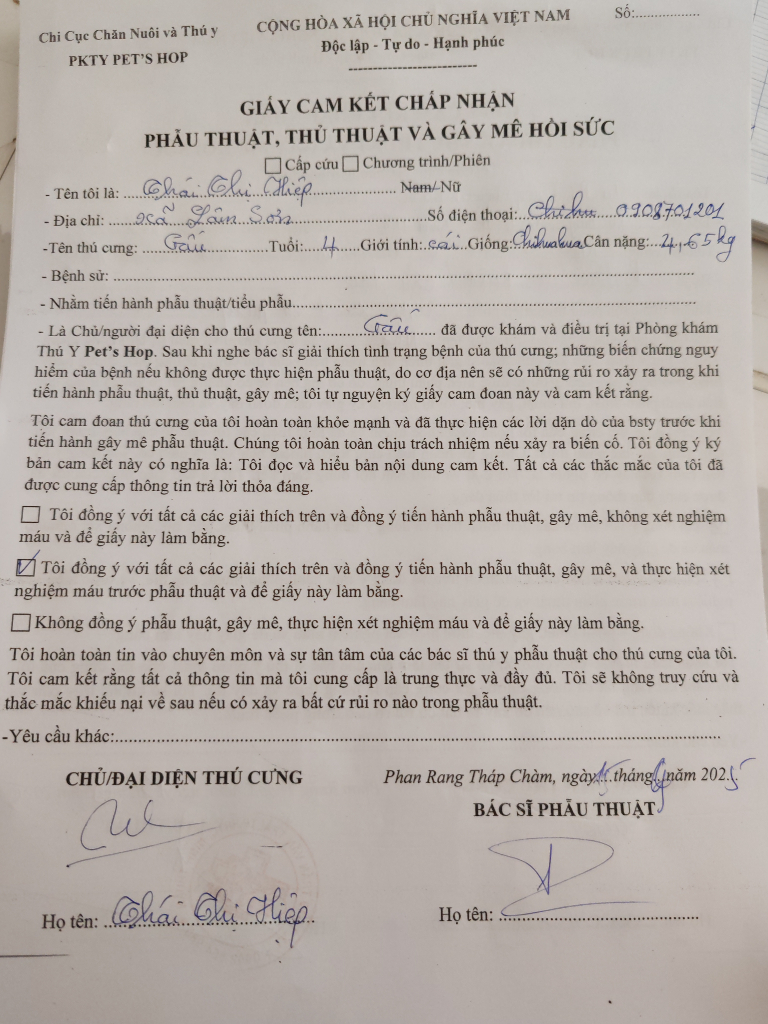 Chi Cục Chăn Nuôi và Thú y
PKTY PET'S HOP
CỘNG HÒA XÃ HỘI CHỦ NGHĨA VIỆT NAM
Độc lập - Tự do - Hạnh phúc
Số:................
GIẤY CAM KẾT CHẤP NHẬN
PHẪU THUẬT, THỦ THUẬT VÀ GÂY MÊ HỒI SỨC
☐ Cấp cứu ☐ Chương trình/Phiên
- Tên tôi là: Thái Thị Hiệp Nam/ Nữ
- Địa chỉ: xã Lâm Sơn Số điện thoại: 0908701201
-Tên thú cưng: Gấu Tuổi: 4 Giới tính: cái Giống: Chihuahua Cân nặng: 4,65kg
- Bệnh sử:
- Nhằm tiến hành phẫu thuật/tiểu phẫu
- Là Chủ/người đại diện cho thú cưng tên: Gấu đã được khám và điều trị tại Phòng khám
Thú Y Pet's Hop. Sau khi nghe bác sĩ giải thích tình trạng bệnh của thú cưng; những biến chứng nguy
hiểm của bệnh nếu không được thực hiện phẫu thuật, do cơ địa nên sẽ có những rủi ro xảy ra trong khi
tiến hành phẫu thuật, thủ thuật, gây mê; tôi tự nguyện ký giấy cam đoan này và cam kết rằng.
Tôi cam đoan thú cưng của tôi hoàn toàn khỏe mạnh và đã thực hiện các lời dặn dò của bsty trước khi
tiến hành gây mê phẫu thuật. Chúng tôi hoàn toàn chịu trách nhiệm nếu xảy ra biến cố. Tôi đồng ý ký
bản cam kết này có nghĩa là: Tôi đọc và hiểu bản nội dung cam kết. Tất cả các thắc mắc của tôi đã
được cung cấp thông tin trả lời thỏa đáng.
☐ Tôi đồng ý với tất cả các giải thích trên và đồng ý tiến hành phẫu thuật, gây mê, không xét nghiệm
máu và để giấy này làm bằng.
☑ Tôi đồng ý với tất cả các giải thích trên và đồng ý tiến hành phẫu thuật, gây mê, và thực hiện xét
nghiệm máu trước phẫu thuật và để giấy này làm bằng.
☐ Không đồng ý phẫu thuật, gây mê, thực hiện xét nghiệm máu và để giấy này làm bằng.
Tôi hoàn toàn tin vào chuyên môn và sự tân tâm của các bác sĩ thú y phẫu thuật cho thú cưng của tôi.
Tôi cam kết rằng tất cả thông tin mà tôi cung cấp là trung thực và đầy đủ. Tôi sẽ không truy cứu và
thắc mắc khiếu nại về sau nếu có xảy ra bất cứ rủi ro nào trong phẫu thuật.
-Yêu cầu khác:
CHỦ/ĐẠI DIỆN THÚ CƯNG
Phan Rang Tháp Chàm, ngày 15 tháng năm 2025
BÁC SĨ PHẪU THUẬT
Họ tên: Thái Thị Hiệp
Họ tên: